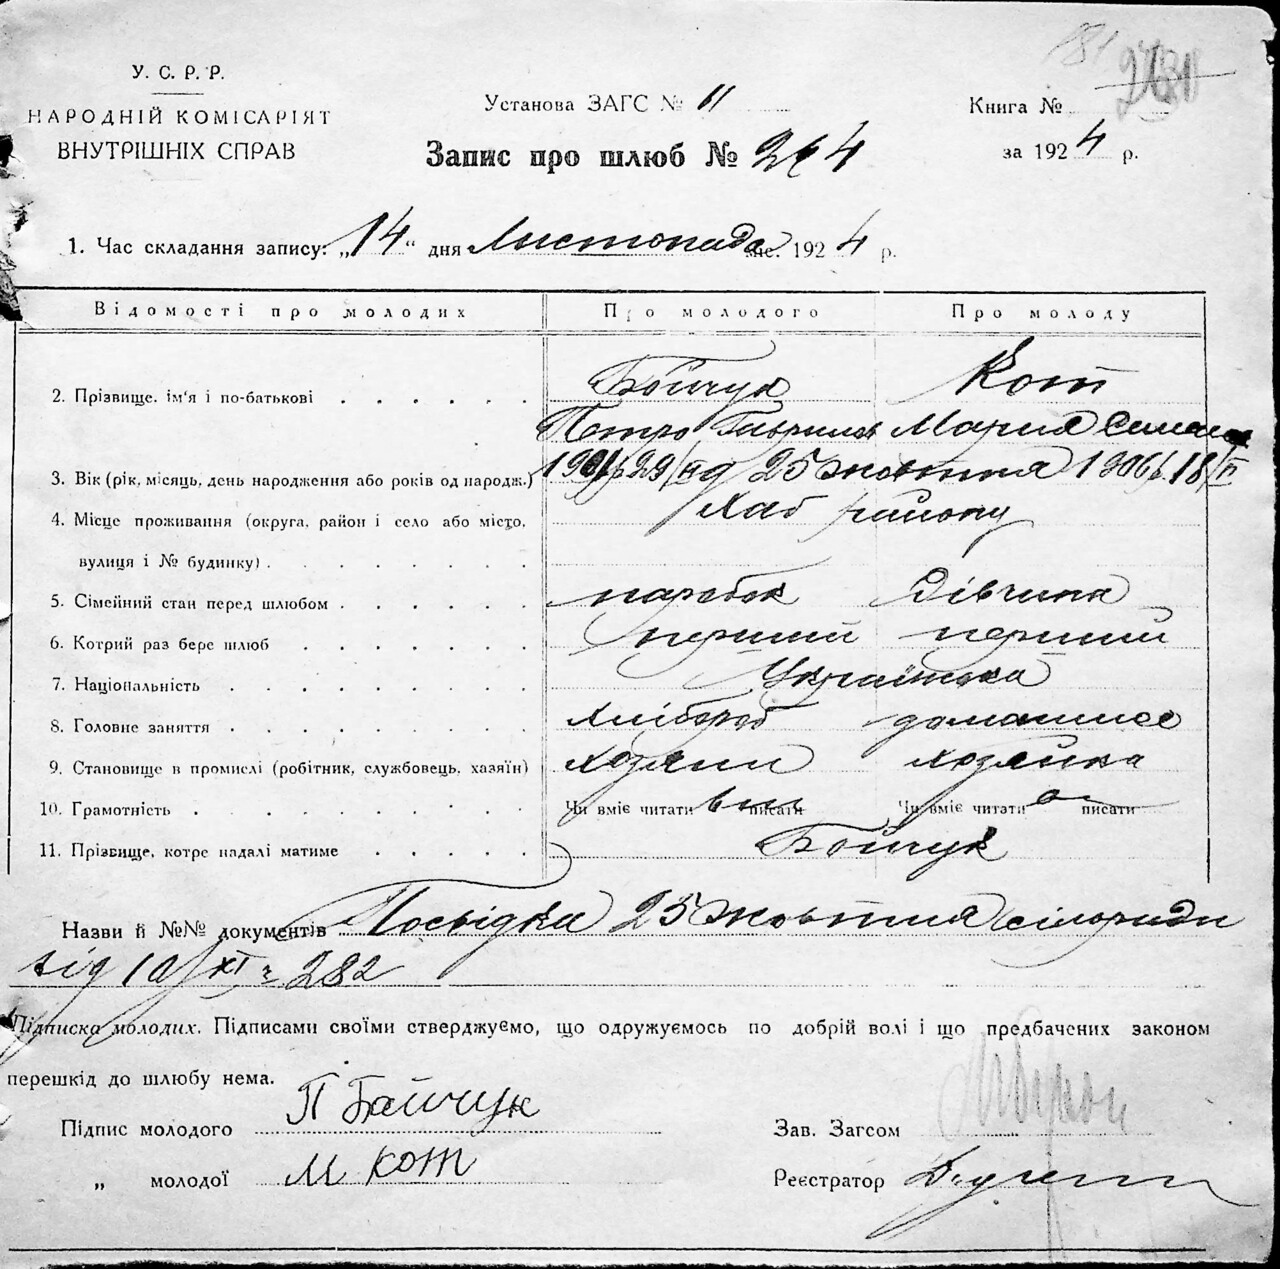 181
У. С. Р. Р.
НАРОДНІЙ КОМІСАРІЯТ
ВНУТРІШНІХ СПРАВ
Установа ЗАГС № 11
Книга №
Запис про шлюб № 264
за 1924 р.
1. Час складання запису: „14“ дня Листопада міс. 1924 р.
Відомості про молодих Про молодого Про молоду
2. Прізвище, ім'я і по-батькові Бойчук Кот
Петро Гаврилов Мария
3. Вік (рік, місяць, день народження або років од народж.) 25 жовтня 1906 р. 18/II
4. Місце проживання (округа, район і село або місто, Хаб району
вулиця і № будинку)
5. Сімейний стан перед шлюбом паробок Дівчина
6. Котрий раз бере шлюб перший перший
7. Національність Українська
8. Головне заняття Хлібороб домашнее
9. Становище в промислі (робітник, службовець, хазяїн) Хозяин Хозяйка
10. Грамотність Чи вміє читати писати Чи вміє читати писати
11. Прізвище, котре надалі матиме Бойчук
Назви й №№ документів Посвідка 25 жовтня сілоради
від 10/XI 282
Підписка молодих. Підписами своїми стверджуємо, що одружуємось по добрій волі і що предбачених законом
перешкід до шлюбу нема.
Підпис молодого П Бойчук
Зав. Загсом
„ молодої М Кот
Реєстратор